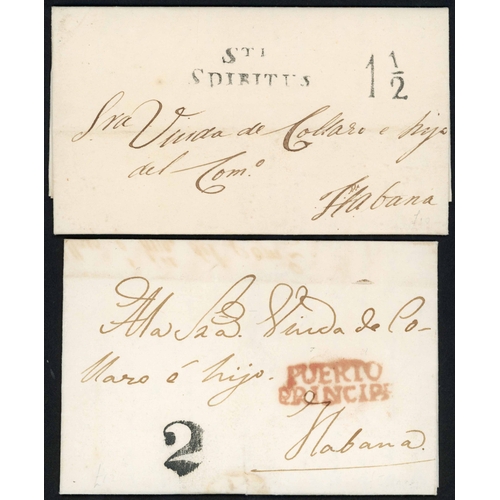 STI
SPIRITUS
1 1/2
Sra Viuda de Collaro e hijo
del Com.º
Habana
A la Sra. Viuda de Co-
llaro é hijo.
PUERTO
PRINCIPE
2
Habana.